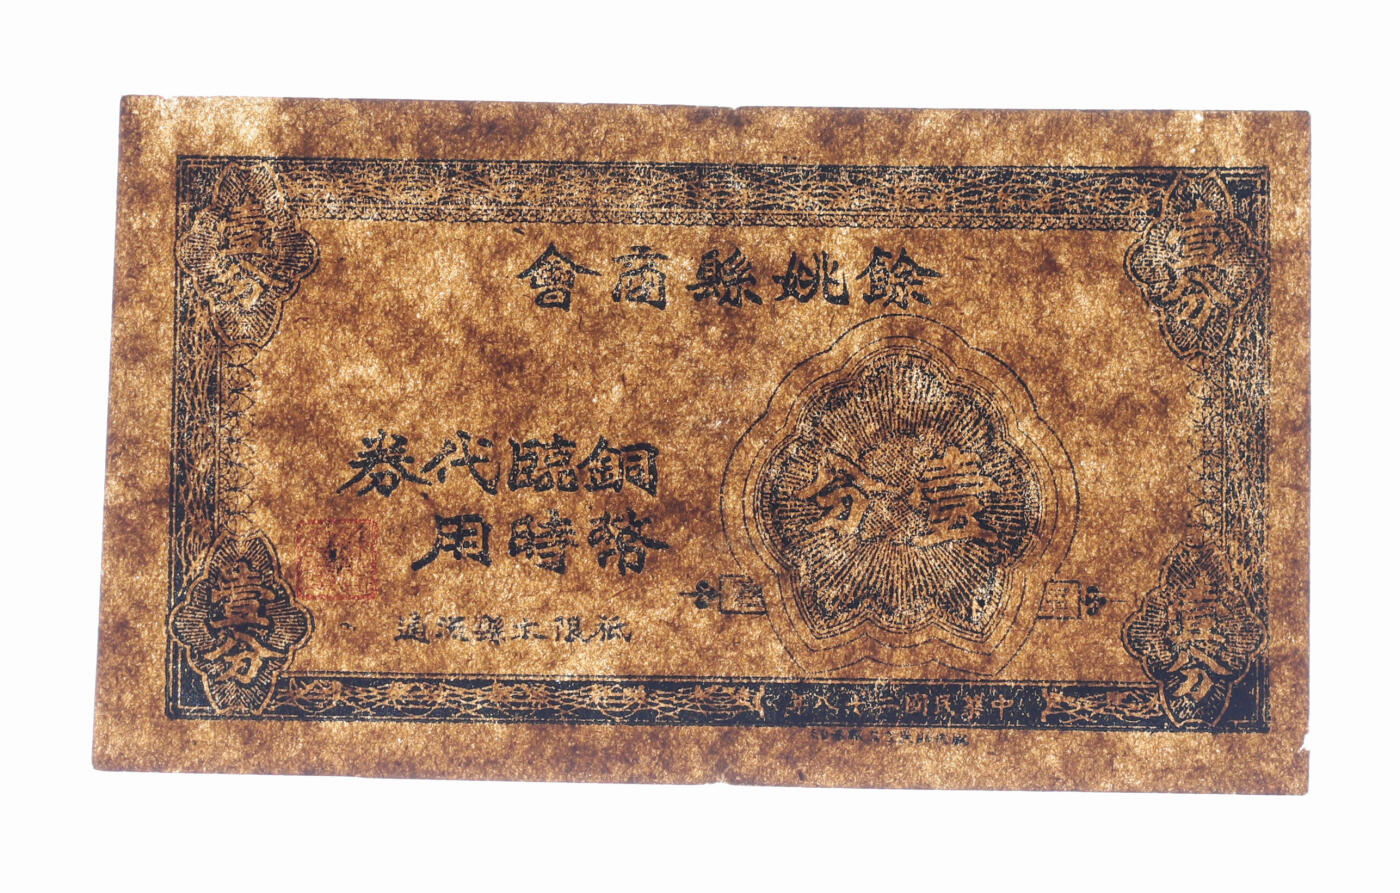 壹分
壹分
餘姚縣商會
壹分
銅幣臨時代用券
祇限本縣流通
壹分
壹分
中華民國二十八年